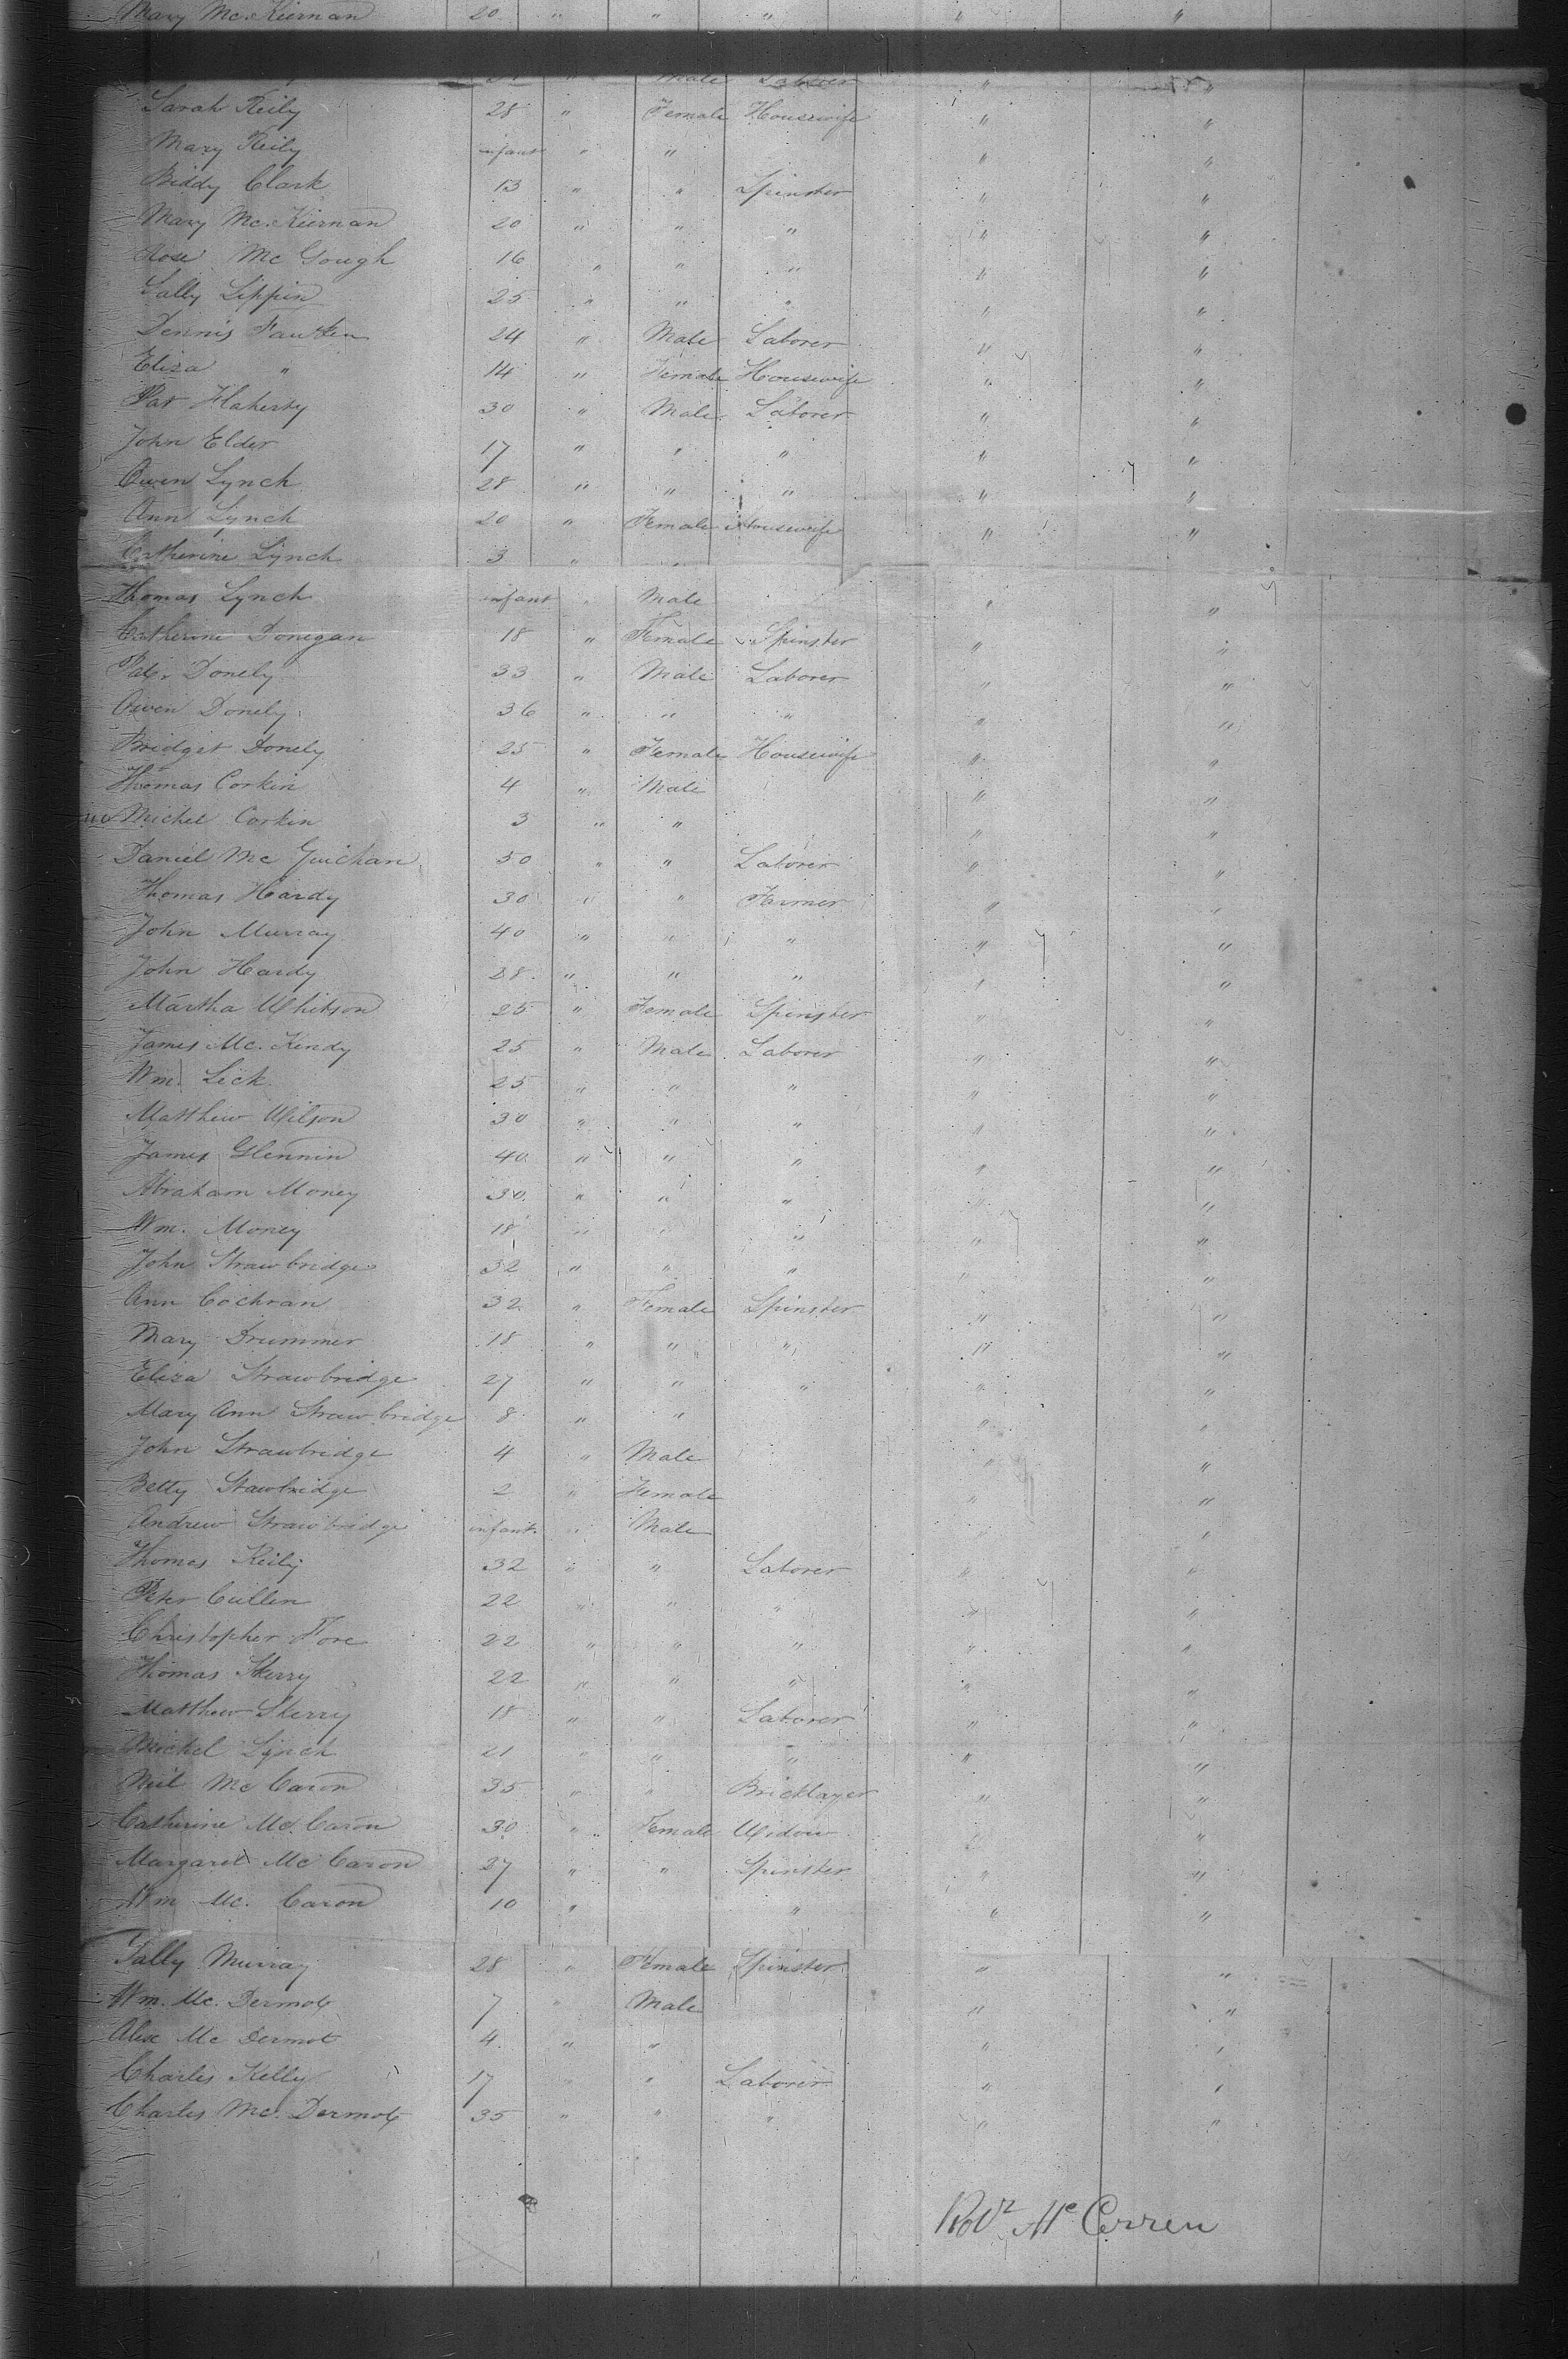 Mary Mc.Kiernan 20 " " " " "
Male Laborer " "
Sarah Reily 28 " Female Housewife " "
Mary Reily infant " " " "
Biddy Clark 13 " " Spinster " "
Mary Mc.Kiernan 20 " " " " "
Rose Mc Gough 16 " " " " "
Sally Lippin 25 " " " " "
Dennis 24 " Male Laborer " "
Eliza " 14 " Female Housewife " "
Pat Flaherty 30 " Male Laborer " "
John Elder 17 " " " " "
Owen Lynch 28 " " " " "
Ann Lynch 20 " Female Housewife " "
Catherine Lynch 3 " "
Thomas Lynch infant " Male " "
Catherine Donegan 18 " Female Spinster " "
Pat. Donely 33 " Male Laborer " "
Owen Donely 36 " " " " "
Bridget Donely 25 " Female Housewife " "
Thomas Corkin 4 " Male " "
Michel Corkin 3 " " " "
Daniel Mc Guichan 50 " " Laborer " "
Thomas Hardy 30 " " Farmer " "
John Murray 40 " " " " "
John Hardy 28 " " " " "
Martha Whitson 25 " Female Spinster " "
James Mc. Kendy 25 " Male Laborer " "
Wm. Lick 25 " " " " "
Matthew Wilson 30 " " " " "
James Glennin 40 " " " " "
Abraham Money 30 " " " " "
Wm. Money 18 " " " " "
John Strawbridge 32 " " " " "
Ann Cochran 32 " Female Spinster " "
Mary Drummer 18 " " " " "
Eliza Strawbridge 27 " " " " "
Mary Ann Strawbridge 8 " " " "
John Strawbridge 4 " Male " "
Betty Stawbridge 2 " Female " "
Andrew Strawbridge infant " Male "
Thomas Reily 32 " " Laborer " "
Peter Cullen 22 " " " " "
Christopher Fore 22 " " " " "
Thomas Skerry 22 " " " " "
Matthew Skerry 18 " " Laborer " "
Michel Lynch 21 " " " " "
Neil Mc Caron 35 " " Bricklayer " "
Catherine Mc. Caron 30 " Female Widow " "
Margaret Mc Caron 27 " " Spinster " "
Wm Mc. Caron 10 " " " "
Sally Murray 28 " Female Spinster " "
Wm. Mc. Dermot 7 " Male " "
Alex Mc Dermot 4 " " " "
Charles Kelly 17 " " Laborer " "
Charles Mc. Dermot 35 " " " " "
Robt Mc Cerren